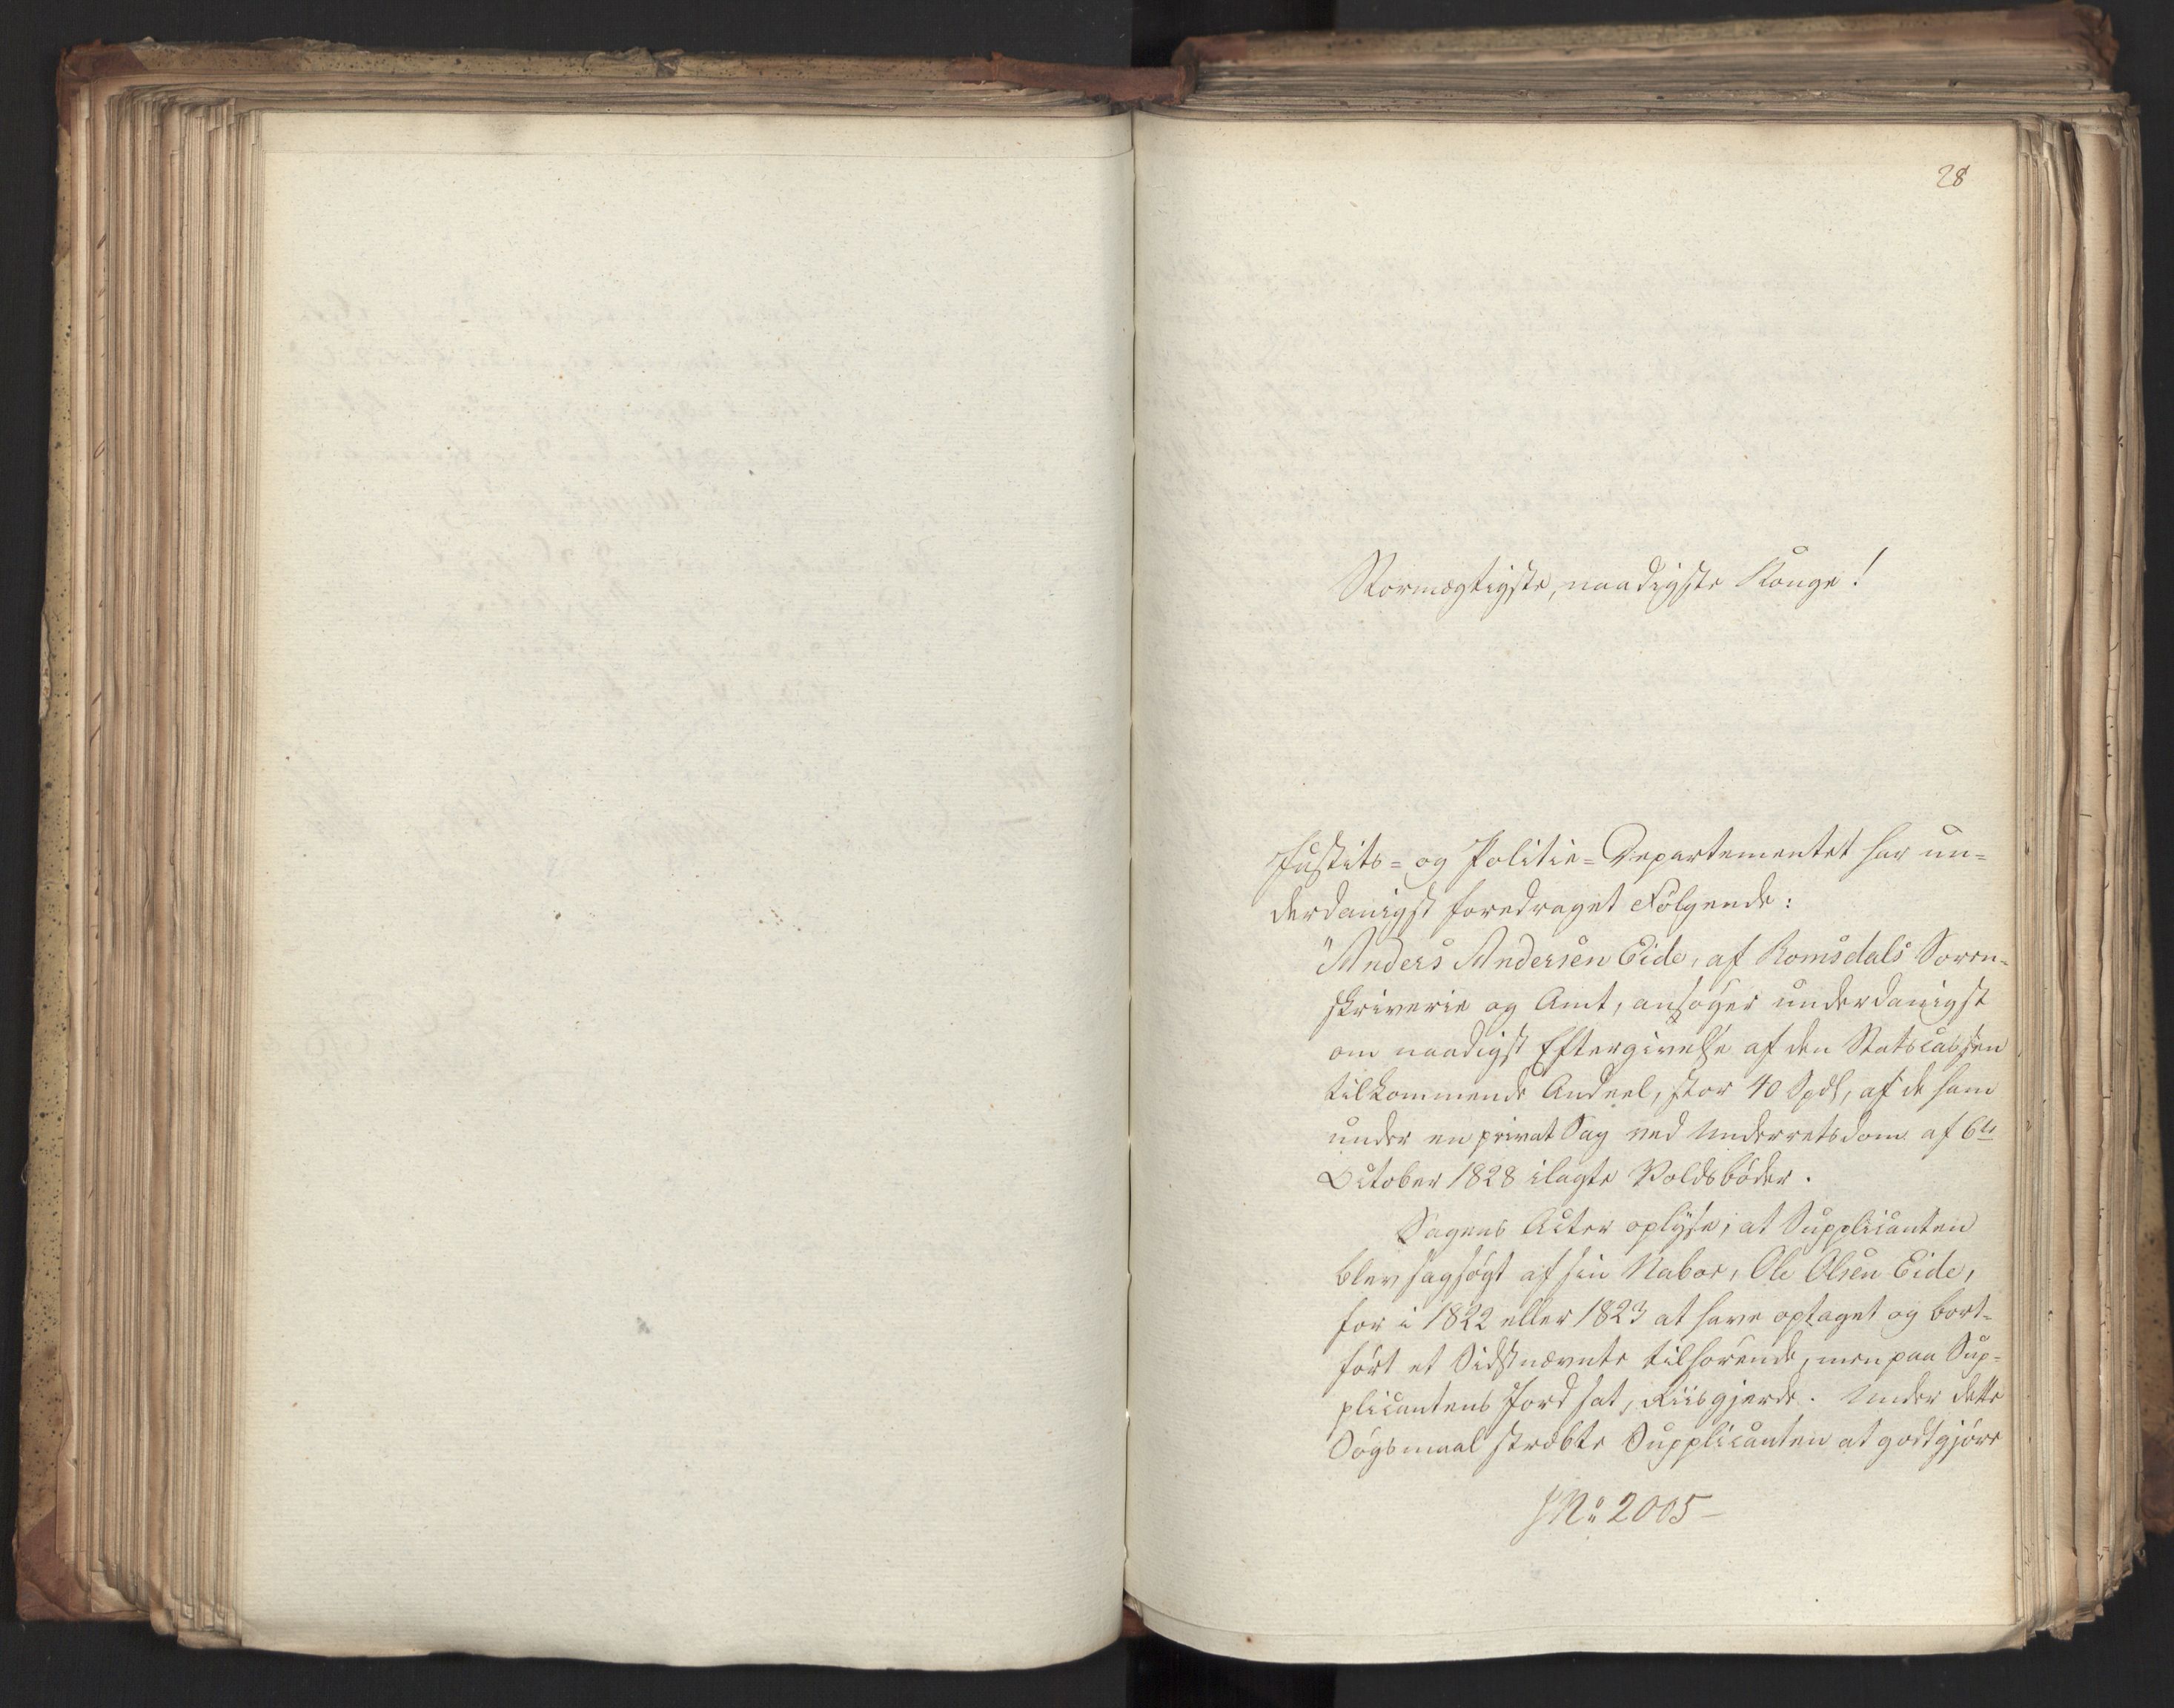 28
Stormægtigste, naadigste Konge!
Justits- og Politie-Departementet har un-
derdanigst foredraget Følgende:
"Anders Andersen Eide, af Romsdals Soren-
skriverie og Amt, ansøger underdanigst
om naadigst Eftergivelse af den Statscassen
tilkommende Andeel, stor 40 Spdl, af de ham
under en privat Sag ved Underretsdom af 6te
October 1828 ilagte Voldsbøder.
Sagens Acter oplyse, at Supplicanten
blev sagsøgt af sin Naboe, Ole Olsen Eide,
for i 1822 eller 1823 at have optaget og bort-
ført et Sidstnævnte tilhørende, men paa Sup-
plicantens Jord sat, Riisgjerde. Under dette
Søgsmaal stræbte Supplicanten at godtgjøre
JNo 2005-